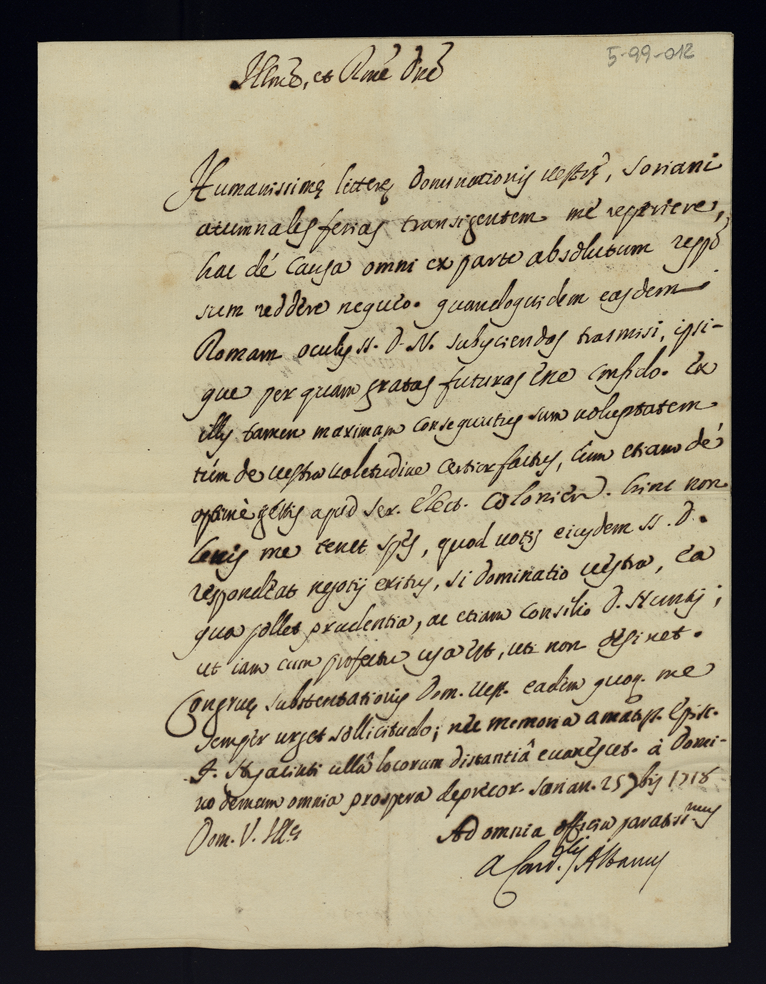 5-99-012
Illme, et Rme Dne
Humanissimę litterę Dominationis vestrę, Soriani
autumnales ferias transigentem me reperiere,
hac de causa omni ex parte absolutum respō
sum reddere nequeo. quandoquidem easdem
Romam oculis SS. D. N. subyciendas trasmisi, ipsi-
que per quam gratas futuras bene confido. Ex
illis tamen maximam consequutus sum voluptatem
tum de vestra valetudine certior factus, cum etiam dé
optimè gestis apud Ser. Elect. Colonien. hinc non
levis me tenet spes, quod votis eiusdem SS. D.
respondeat negotij exitus, si dominatio vestra, ea
qua pollet prudentia, ac etiam Consilio D. Nuntij;
ut iam cum profectu usa est, uti non desinet.
Congruę substentationis Dom. vest. eadem quoq. me
semper urget sollicitudo; nec memoria amatis. Epist.
F. Hyacinti ullâ locorum distantiâ evanescet. à Domi-
no demum omnia prospera deprecor. Sorian. 25 7bris 1718
Dom. V. Illę
Ad omnia officia paratissimus
A Cardlis Albanus